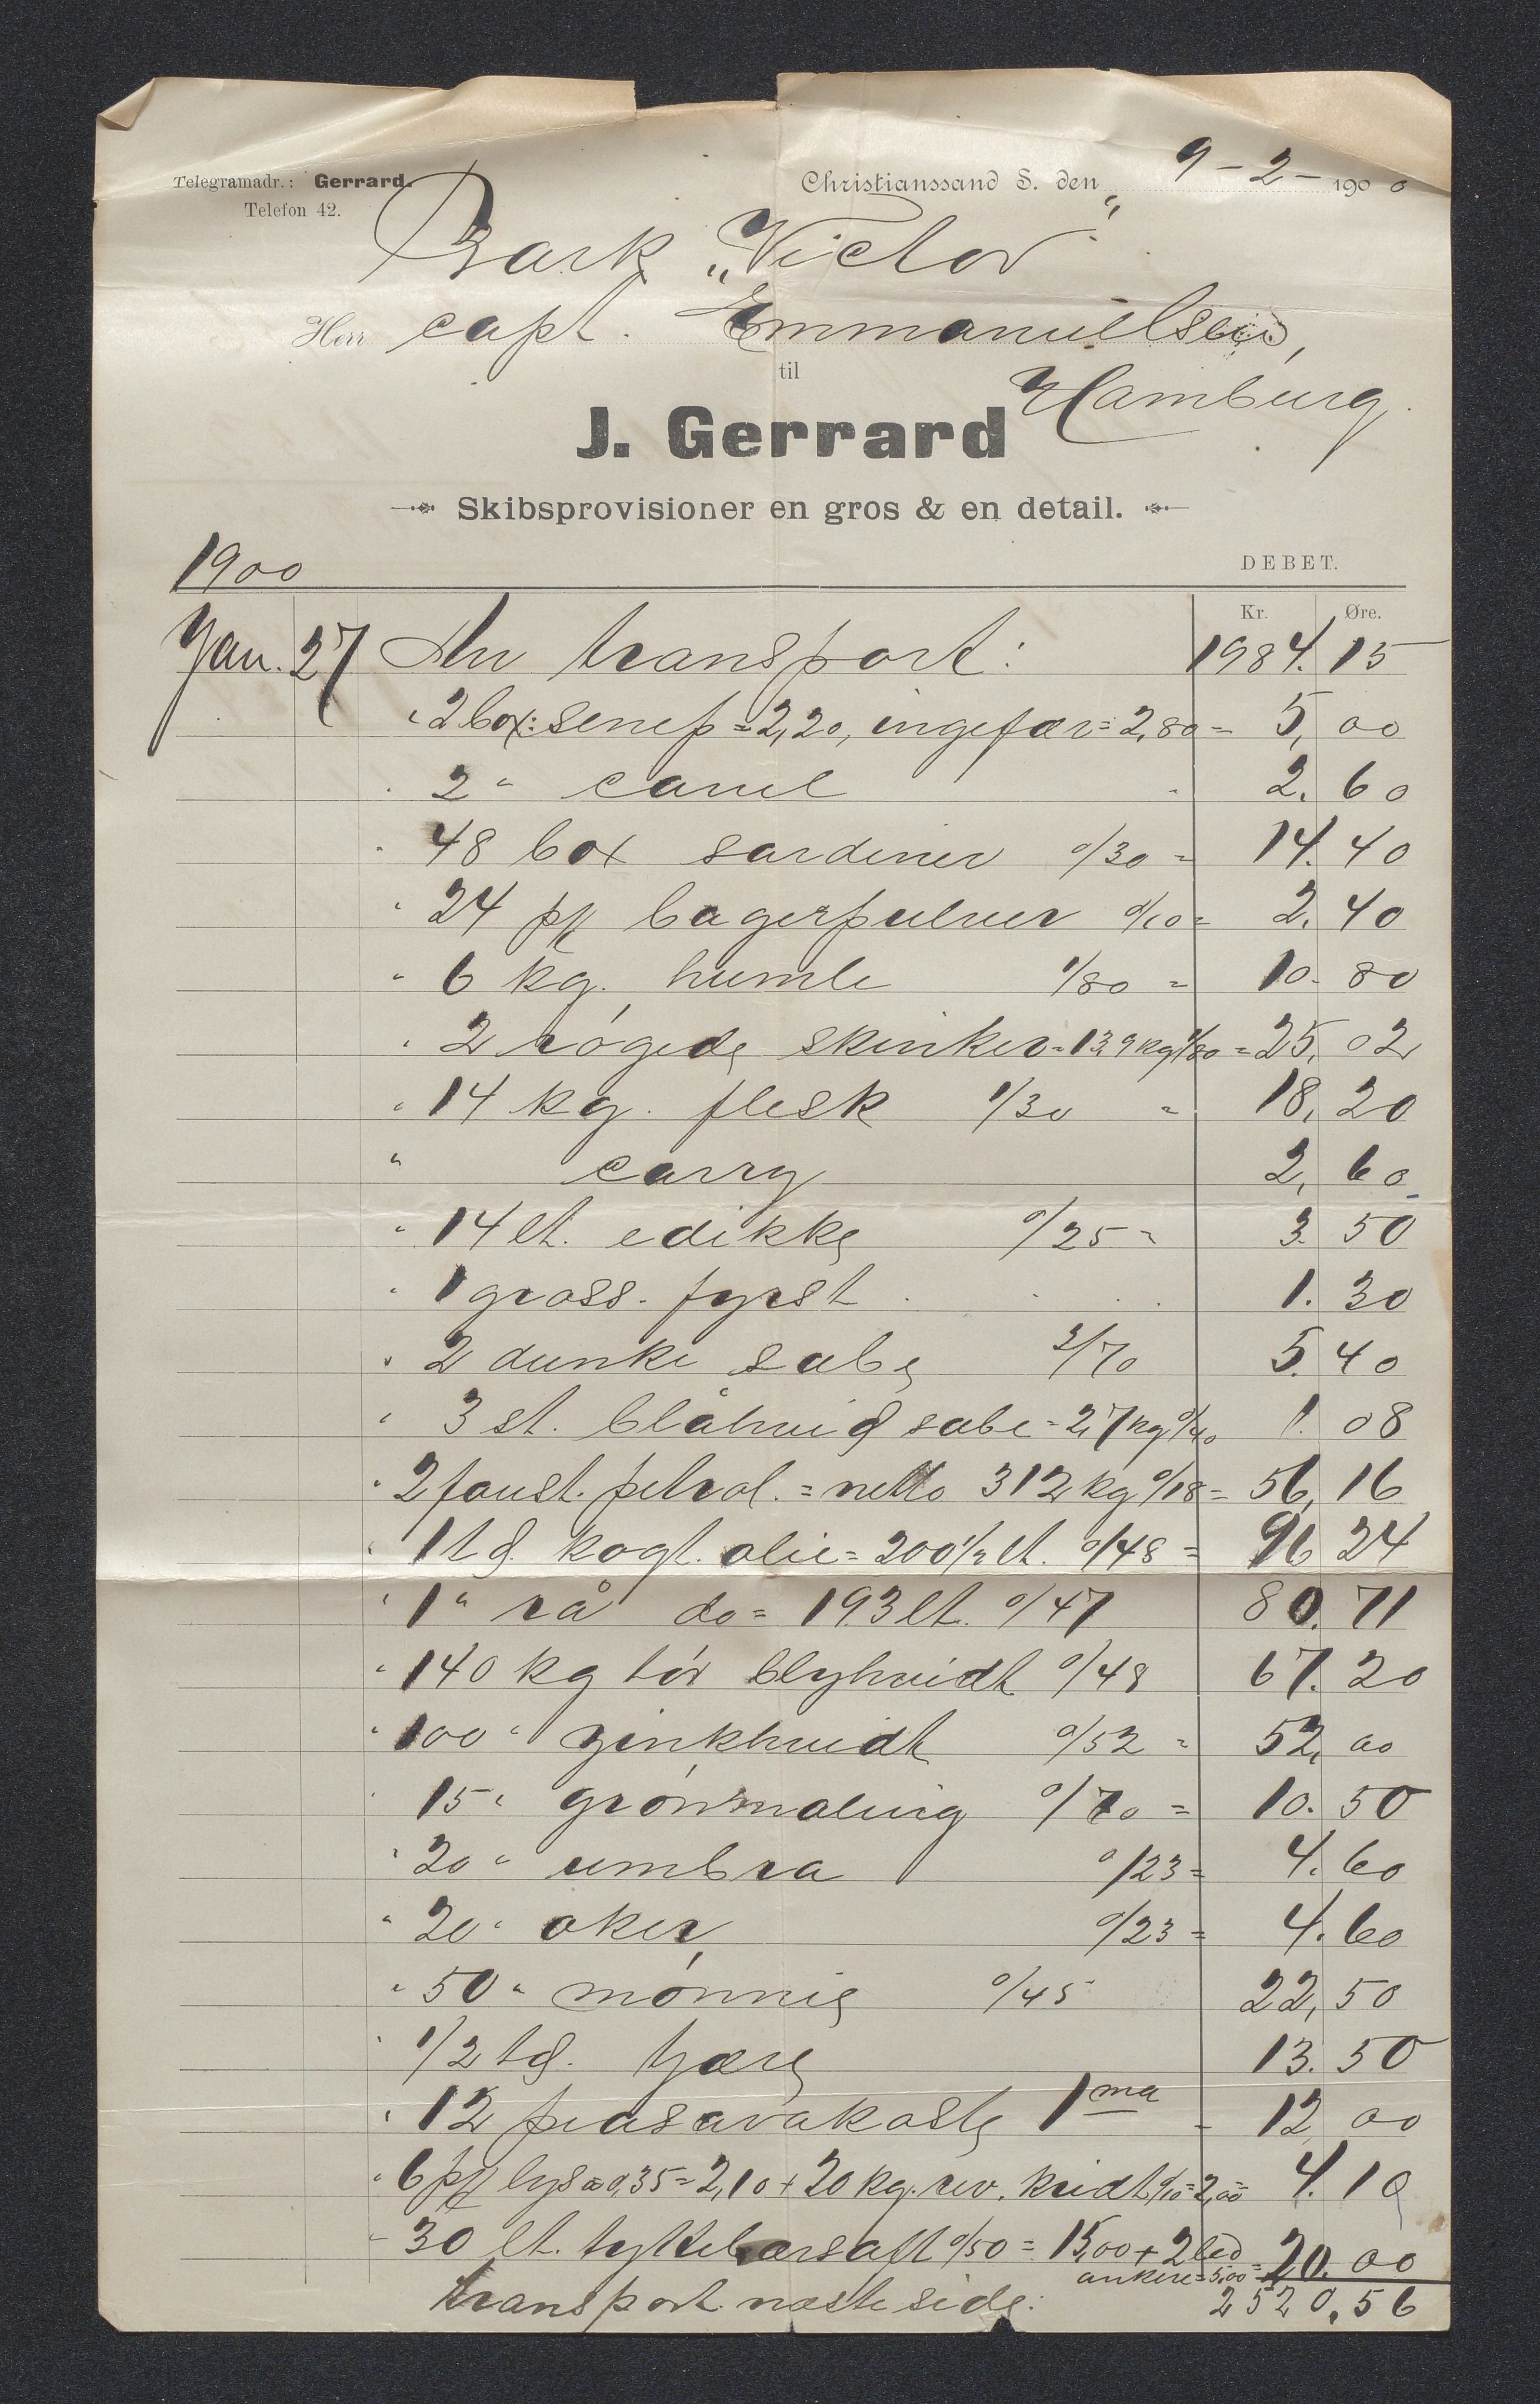 Telegramadr.: Gerrard.
Telefon 42.
Christianssand S. den 9-2- 1900
Bark „Victor"
Herr capt. Emmanuelsen,
til
Hamburg.
J. Gerrard
Skibsprovisioner en gros & en detail.
1900
DEBET.
Kr. Øre.
Jan. 27 An transport: 1984. 15
" 2 box: senep = 2,20, ingefær = 2,80 = 5, 00
" 2 " canel " 2. 60
" 48 box sardiner 0/30 = 14. 40
" 24 pk bagerpulver 0/10 = 2. 40
" 6 kg. humle 1/80 = 10. 80
" 2 røgede skinker = 13,9 kg 1/80 = 25, 02
" 14 kg. flesk 1/30 = 18, 20
" carry 2, 60
" 14 lt. edikke 0/25 = 3. 50
" 1 gross. fyrst . . . 1. 30
" 2 dunke sæbe 2/70 5. 40
" 3 st. blåhvid sæbe = 2,7 kg 0/40 1. 08
" 2 faust. petrol. = netto 312 kg 0/18 = 56, 16
" 1 td. kogt. olie = 200 1/2 lt. 0/48 = 96 24
" 1 " rå do = 193 lt. 0/47 80. 71
" 140 kg tør blyhvidt 0/48 67. 20
" 100 " zinkhvidt 0/52 = 52, 00
" 15 " grønmaling 0/70 = 10. 50
" 20 " umbra 0/23 = 4. 60
" 20 " oker 0/23 = 4. 60
" 50 " mønnie 0/45 22, 50
" 1/2 td. tjære 13. 50
" 12 piasavakoste 1ma " 12 00
" 6 pk lys a 0,35 = 2,10 + 20 kg. rev. kridt 0/10 = 2,00 4. 10
" 30 lt. tyttebærsaft 0/50 = 15,00 + 2
ankere = 5,00 = 20. 00
transport næste side: 2520,56